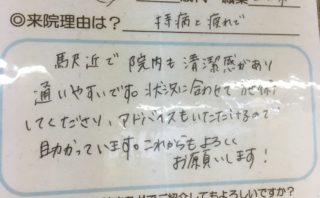 ◎来院理由は？ 持病と疲れで
駅近で院内も清潔感があり
通いやすいです。状況に合わせて
してくださり、アドバイスもいただけるので
助かっています。これからもよろしく
お願いします！
ご紹介してもよろしいですか？